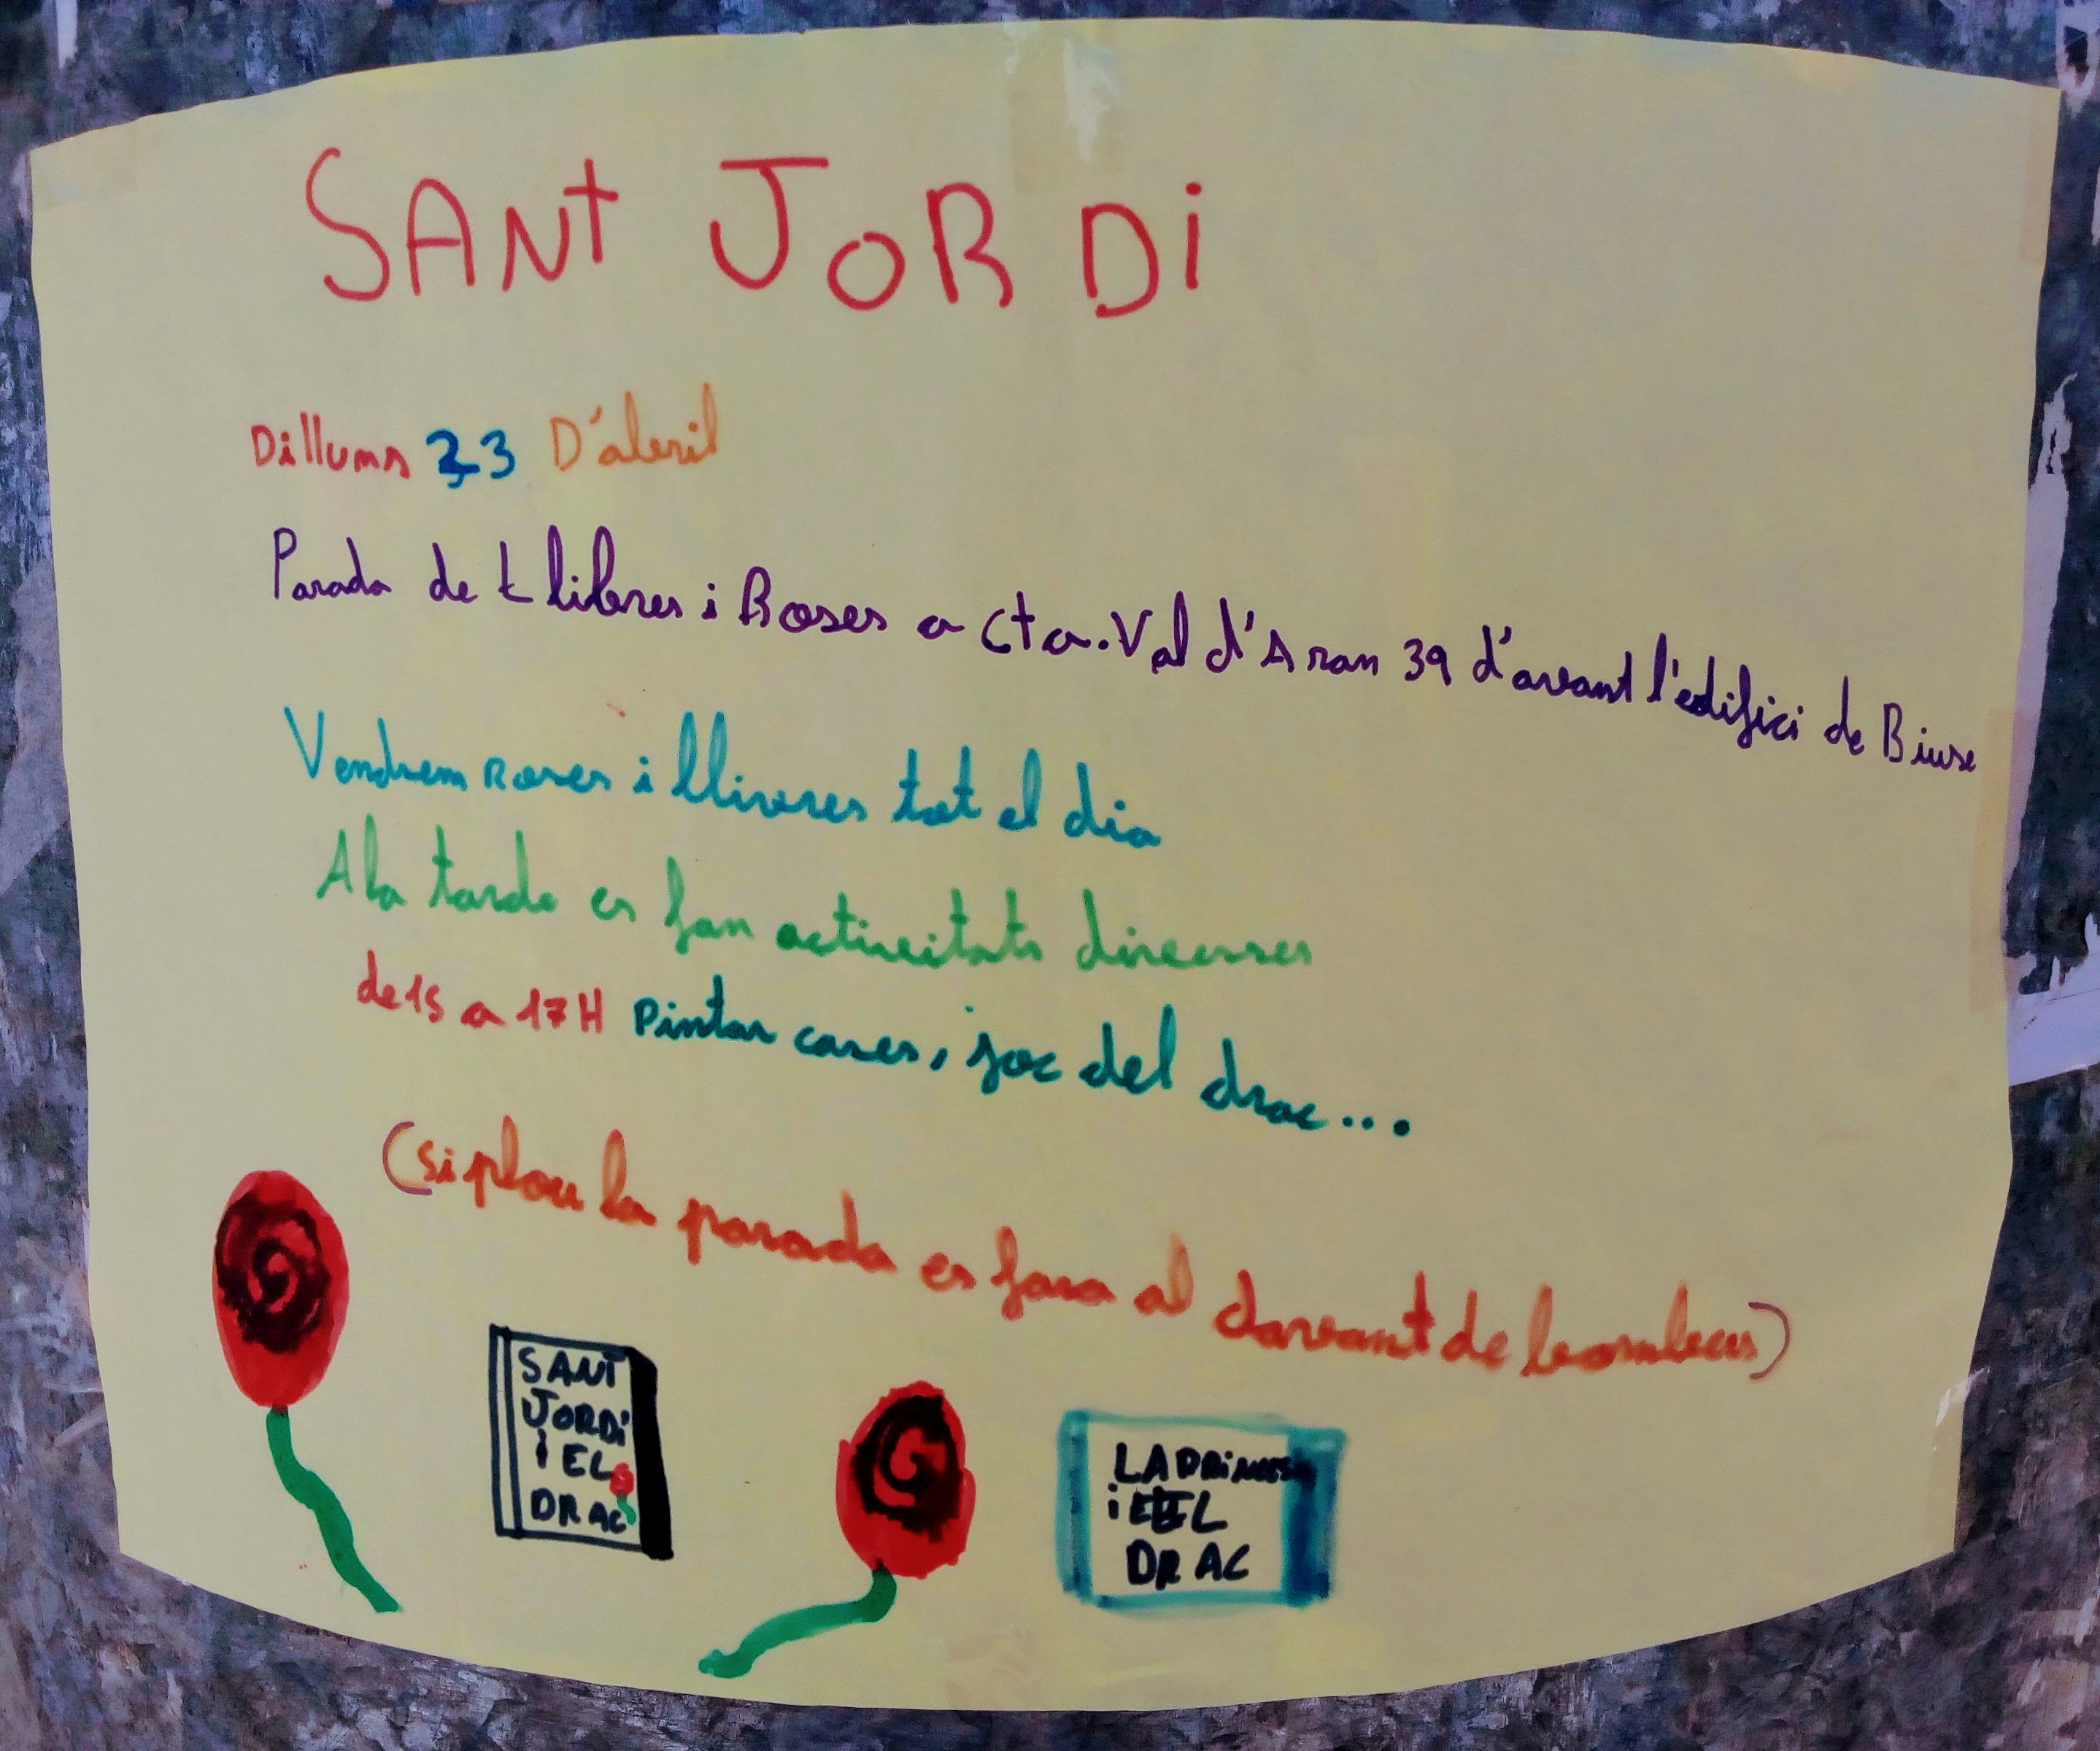 SANT JORDI
Dillums 23 D'abril
Parada de llibres i Roses a Cta. Val d'Aran 39 d'avant l'edifici de Biuse
Vendrem roses i llivres tot el dia
A la tarde es fan activitats diverses
de 15 a 17H Pintar cares, joc del drac...
(si plou la parada es fara al davant de
SANT
JORDI
i EL
DRAC
LA PRINCESA
i EL
DRAC